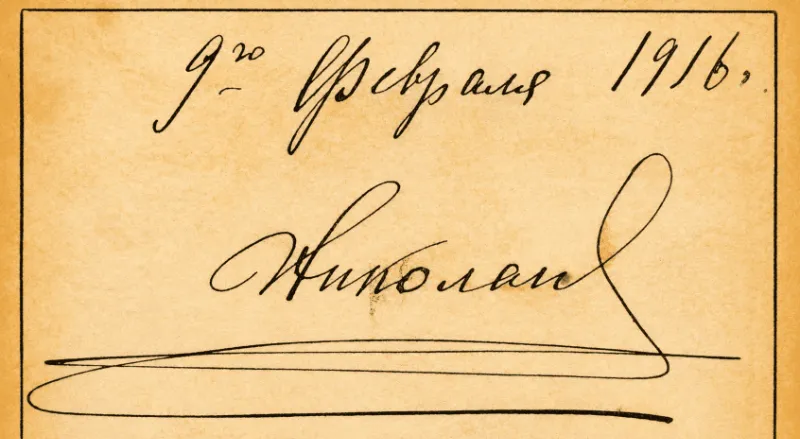 9го Февраля 1916.
Николай